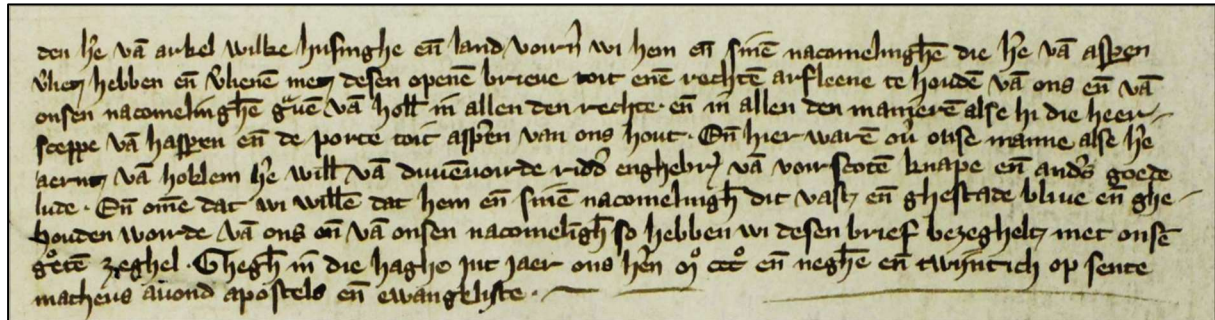 den h'e vā arkel wilke husinghe eñ land vourn̄ wi hem eñ sinē nacomelinghē die h'e vā aspen
v'lien hebben eñ v'lienē meꝫ desen openē brieue toit enē rechtē arfleene te houdē vā ons eñ vā
onsen nacomelinghē g'uē vā holl̄ in allen den rechte · eñ in allen den manierē alse hi die heer-
sceppe vā haspen eñ de porte toit asp'en van ons hout · Eñ hier warē ou' onse manne alse h'e
aernꝫ vā hoklem h'e will̄ vā duuēuorde ridd' enghebr' vā vourscotē knape eñ and's goede
lude · Eñ omē dat wi willē dat hem eñ sinē nacomelingh̄ dit vast eñ ghestade bliue eñ ghe-
houden wourde vā ons eñ vā onsen nacomelīgh̄ so hebben wi desen brief bezeghelt met onsē
g°tē zeghel · Ghegh̄ in die haghe int jaer ons h'en m° ccc° eñ neghē eñ twijntich op sente
matheus auond apostels eñ ewangeliste ·